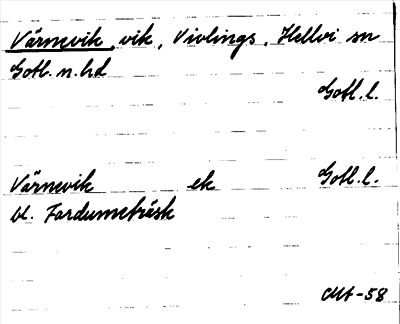 Värnevik, vik, Vivlings, Hellvi sn
Gotl. n. hd
Gotl. l.
Värnevik ek Gotl. l.
bl. Fardumeträsk